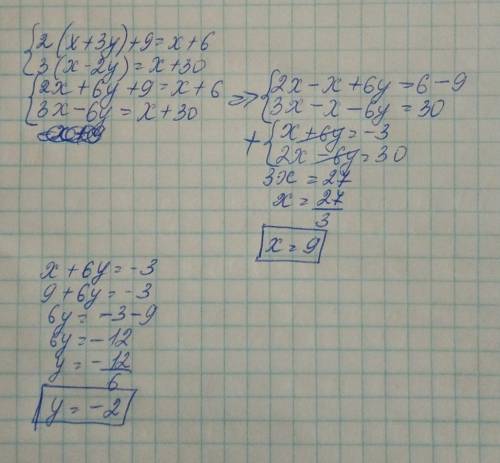 2(x+3y)+9=x+6
3(x-2y)=x+30
2x+6y+9=x+6
3x-6y=x+30
=> 2x-x+6y=6-9
3x-x-6y=30
+ x+6y=-3
2x-6y=30
3x=27
x=27/3
x=9
x+6y=-3
9+6y=-3
6y=-3-9
6y=-12
y=-12/6
y=-2